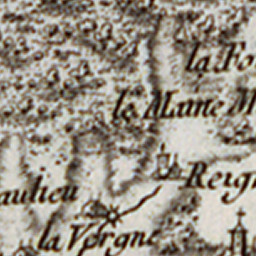 la Fo
le Maine M
Reign
aulieu
la Vergne